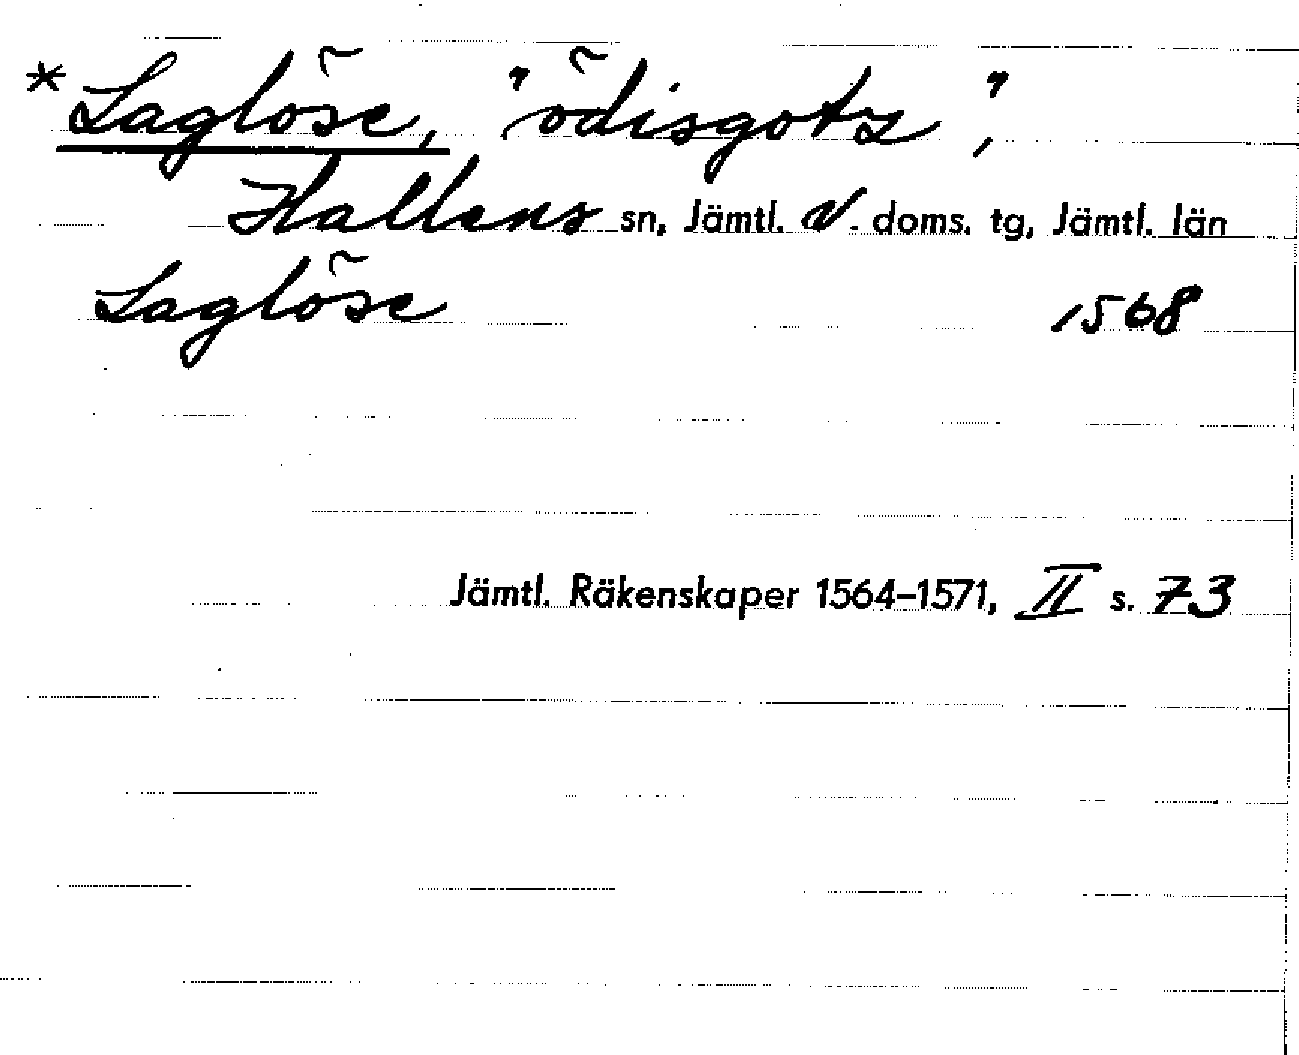 *Laglöse, "ödisgotz",
Hallens sn, Jämtl. V. doms. tg, Jämtl. län
Laglöse 1568
Jämtl. Räkenskaper 1564–1571, II s. 73